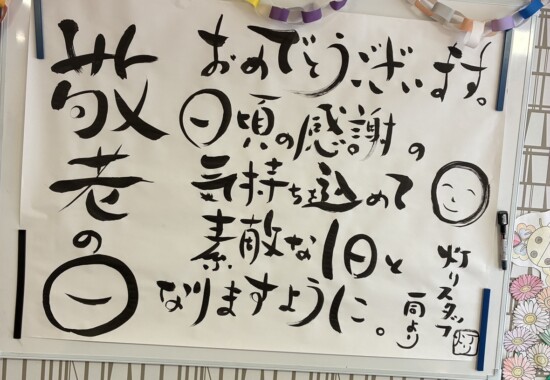 敬老の日
おめでとうございます。
日頃の感謝の
気持ちを込めて
素敵な1日と
なりますように。
灯りスタッフ
一同より
灯り